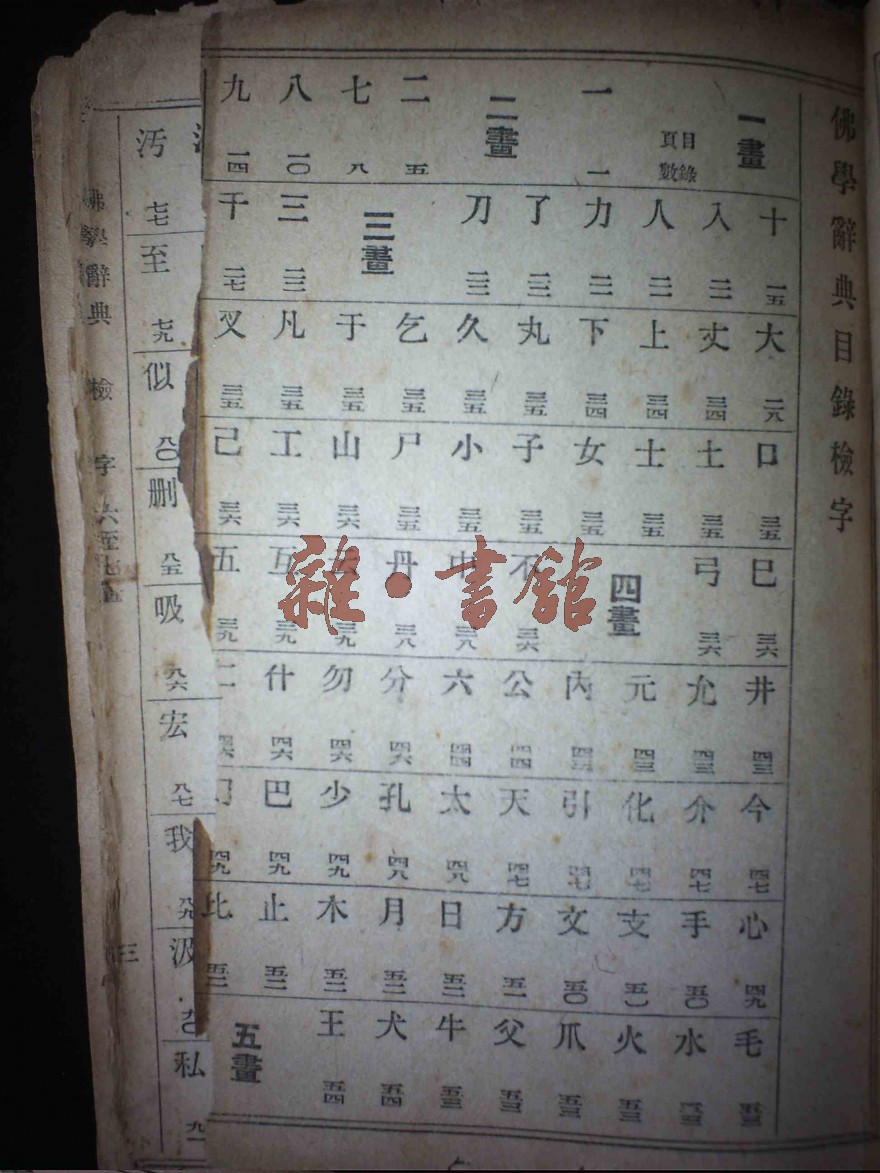 佛學辭典目錄檢字
一畫 目錄頁數 一 二畫 二 七 八 九
一 五 八 一〇 一四
十 入 人 力 了 刀 三畫 三 千
一五 二三 二七
大 丈 上 下 丸 久 乞 于 凡 叉
二八 三四 三四 三四 三五 三五 三五 三五 三五 三五
口 土 士 女 子 小 尸 山 工 己
三五 三五 三五 三五 三五 三五 三五 三六 三六 三六
巳 弓 四畫 不 中 丹 互 五
三六 三六 三六 三八 三八 三九 三九 三九
井 允 元 內 公 六 分 勿 什 仁
四三 四三 四三 四三 四四 四四 四六 四六 四六 四六
今 介 化 引 天 太 孔 少 巴 幻
四七 四七 四七 四七 四七 四八 四八 四九 四九 四九
心 手 支 文 方 日 月 木 止 比
四九 五〇 五〇 五一 五二 五二 五二 五二
毛 水 火 爪 父 牛 犬 王 五畫
五三 五三 五三 五三 五三 五三 五四 五四
雜·書館
汚 七七
至 七九
似 八〇
删 八五
吸 八六
宏 八七
我 八九
汲 九〇
私 九一
佛學辭典 檢字 六至七畫 三